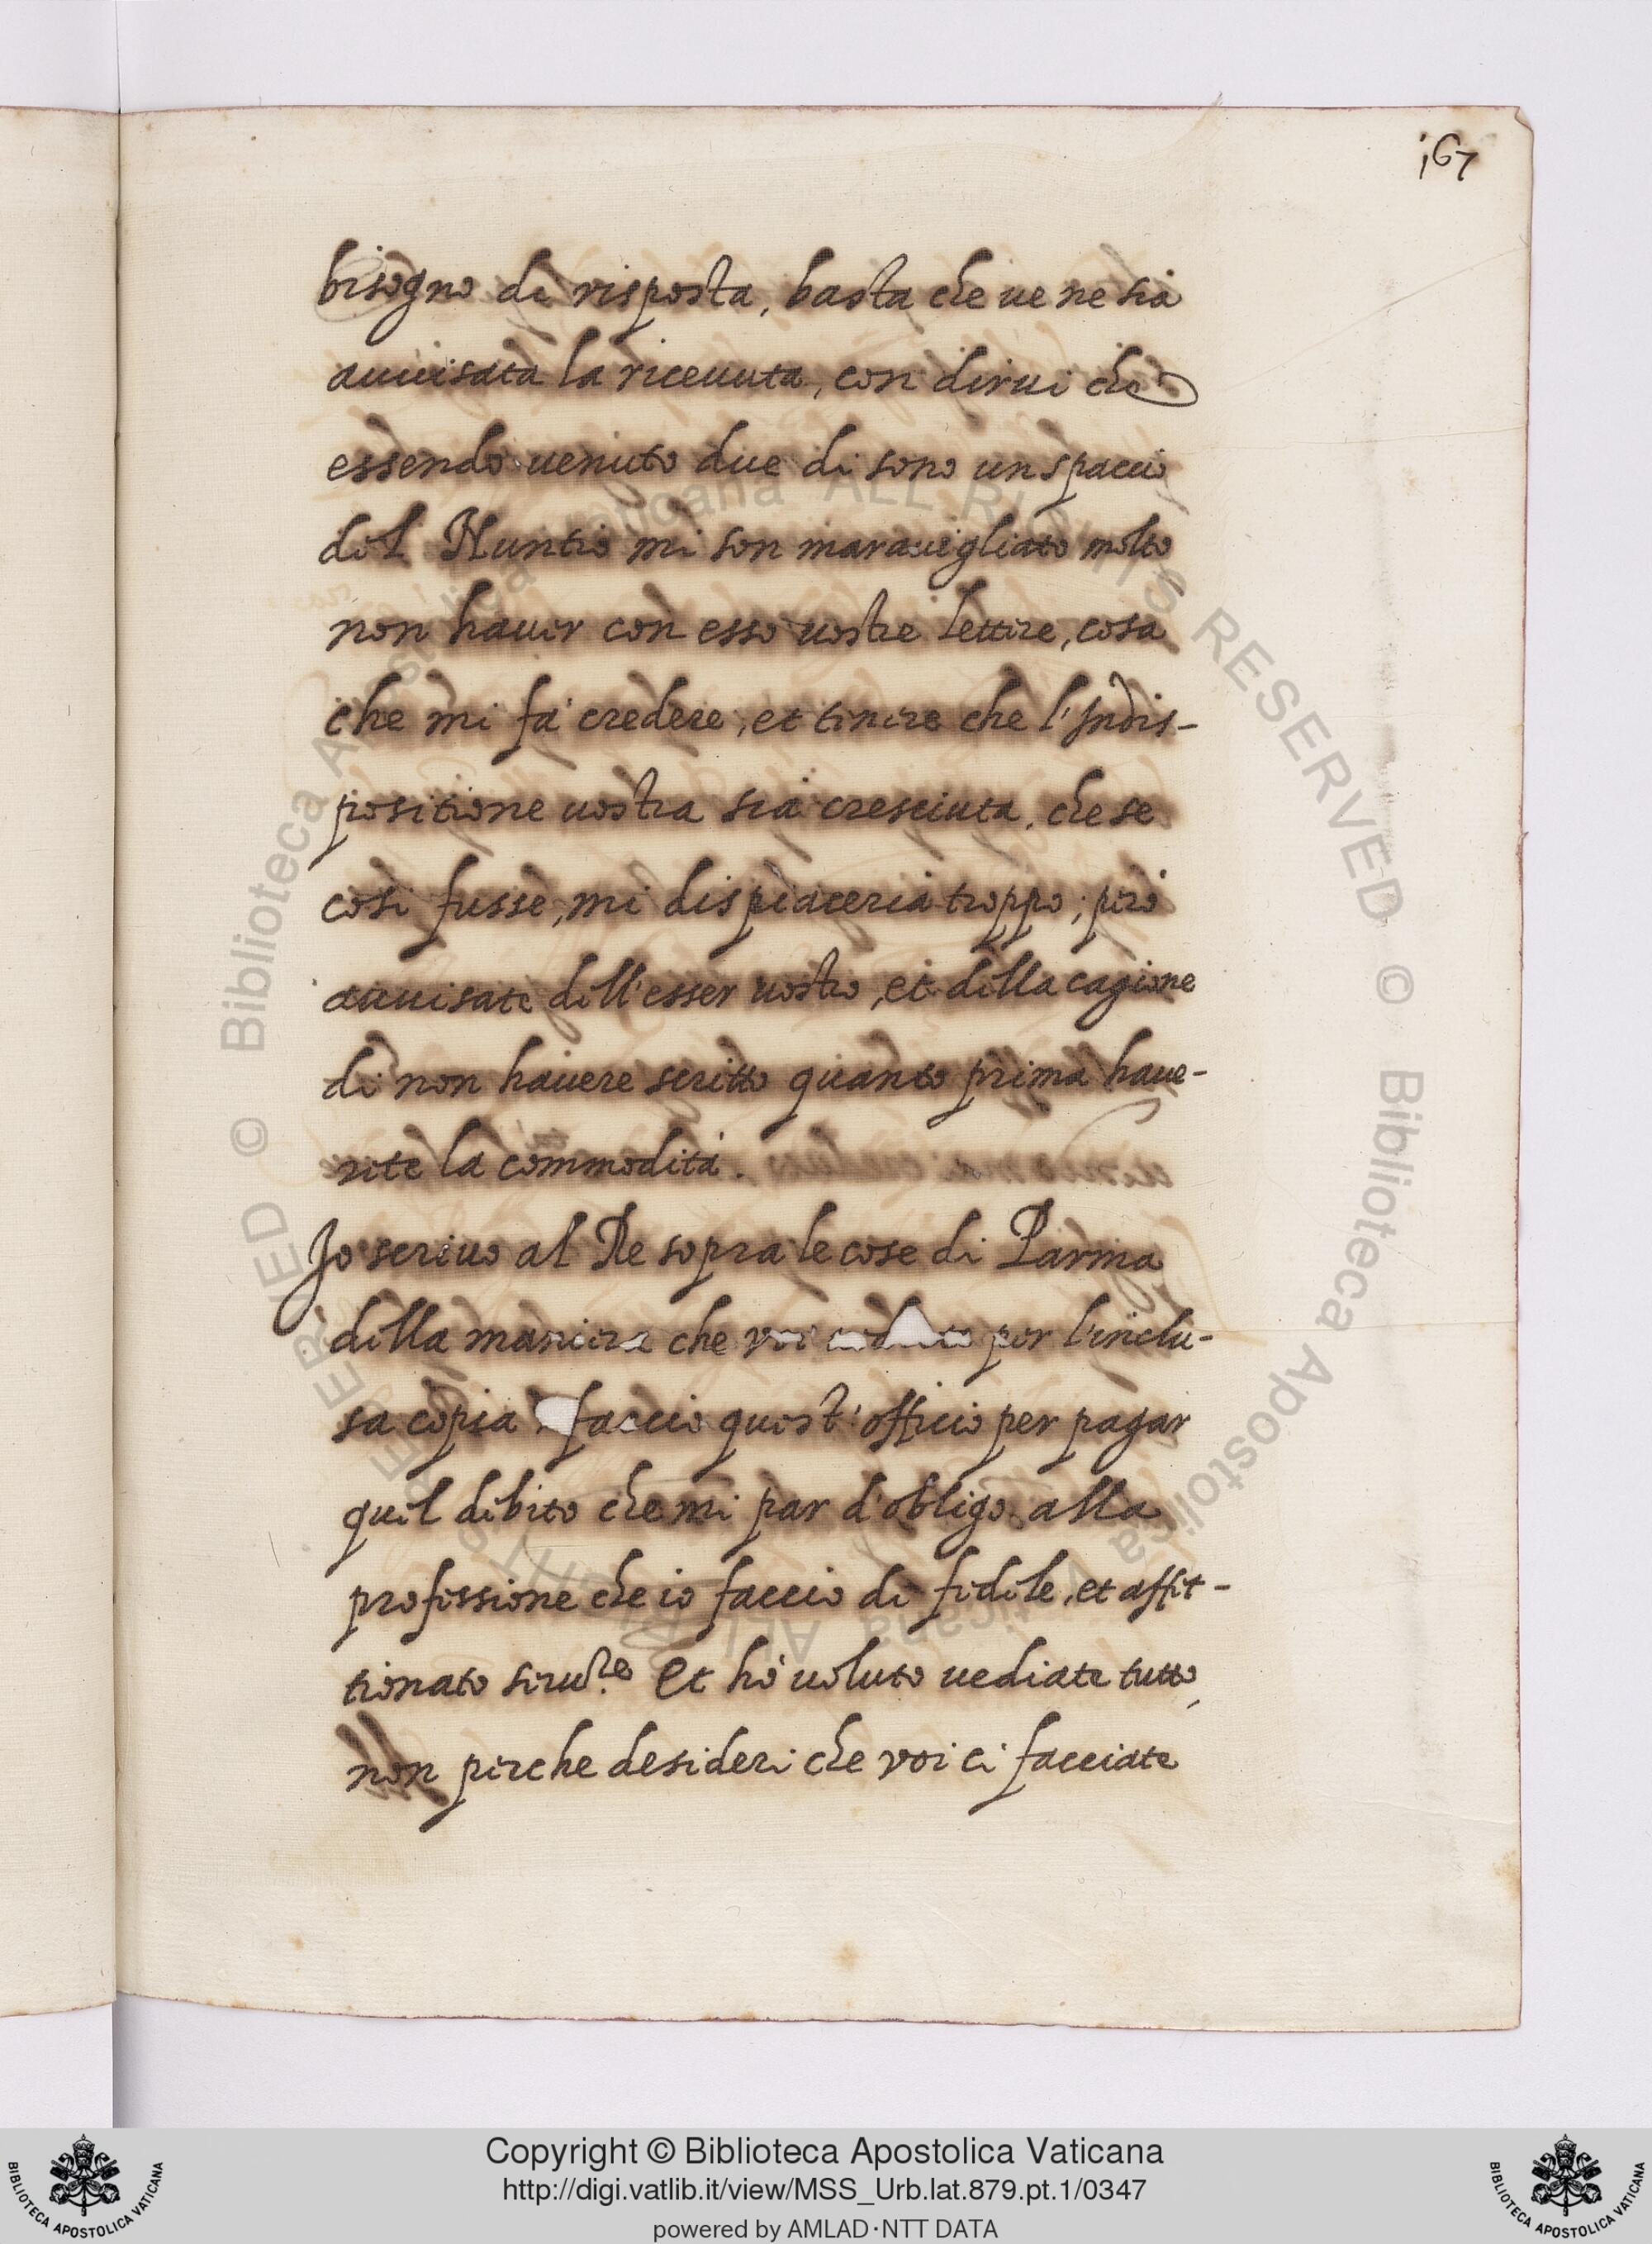 167
bisogno di risposta, basta che ve ne sia
auuisata la riceuuta, con dirui che
essendo uenuto due di sono un spaccio
del Nuntio mi son marauegliato molto
non hauer con esso uostre lettere, cosa
che mi fa credere, et temere che l'Indis-
positione uostra sia cresciuta, che se
così fusse, mi dispiaceria troppo; però
auuisate dell'esser uostro, et della cagione
di non hauere scritto quanto prima haue-
rete la commodità.
Io scriuo al Re sopra le cose di Parma
della maniera che voi per l'inclu-
sa copia. faccio quest'officio per pagar
quel debito che mi par d'obligo alla
professione che io faccio di fedele, et affet-
tionato seru.re Et hò uoluto uediate tutto,
non perche desideri che voi ci facciate
© Biblioteca Apostolica Vaticana ALL RIGHTS RESERVED © Biblioteca Apostolica Vaticana ALL RIGHTS RESERVED
Copyright © Biblioteca Apostolica Vaticana
http://digi.vatlib.it/view/MSS_Urb.lat.879.pt.1/0347
powered by AMLAD·NTT DATA
BIBLIOTECA APOSTOLICA VATICANA
BIBLIOTECA APOSTOLICA VATICANA